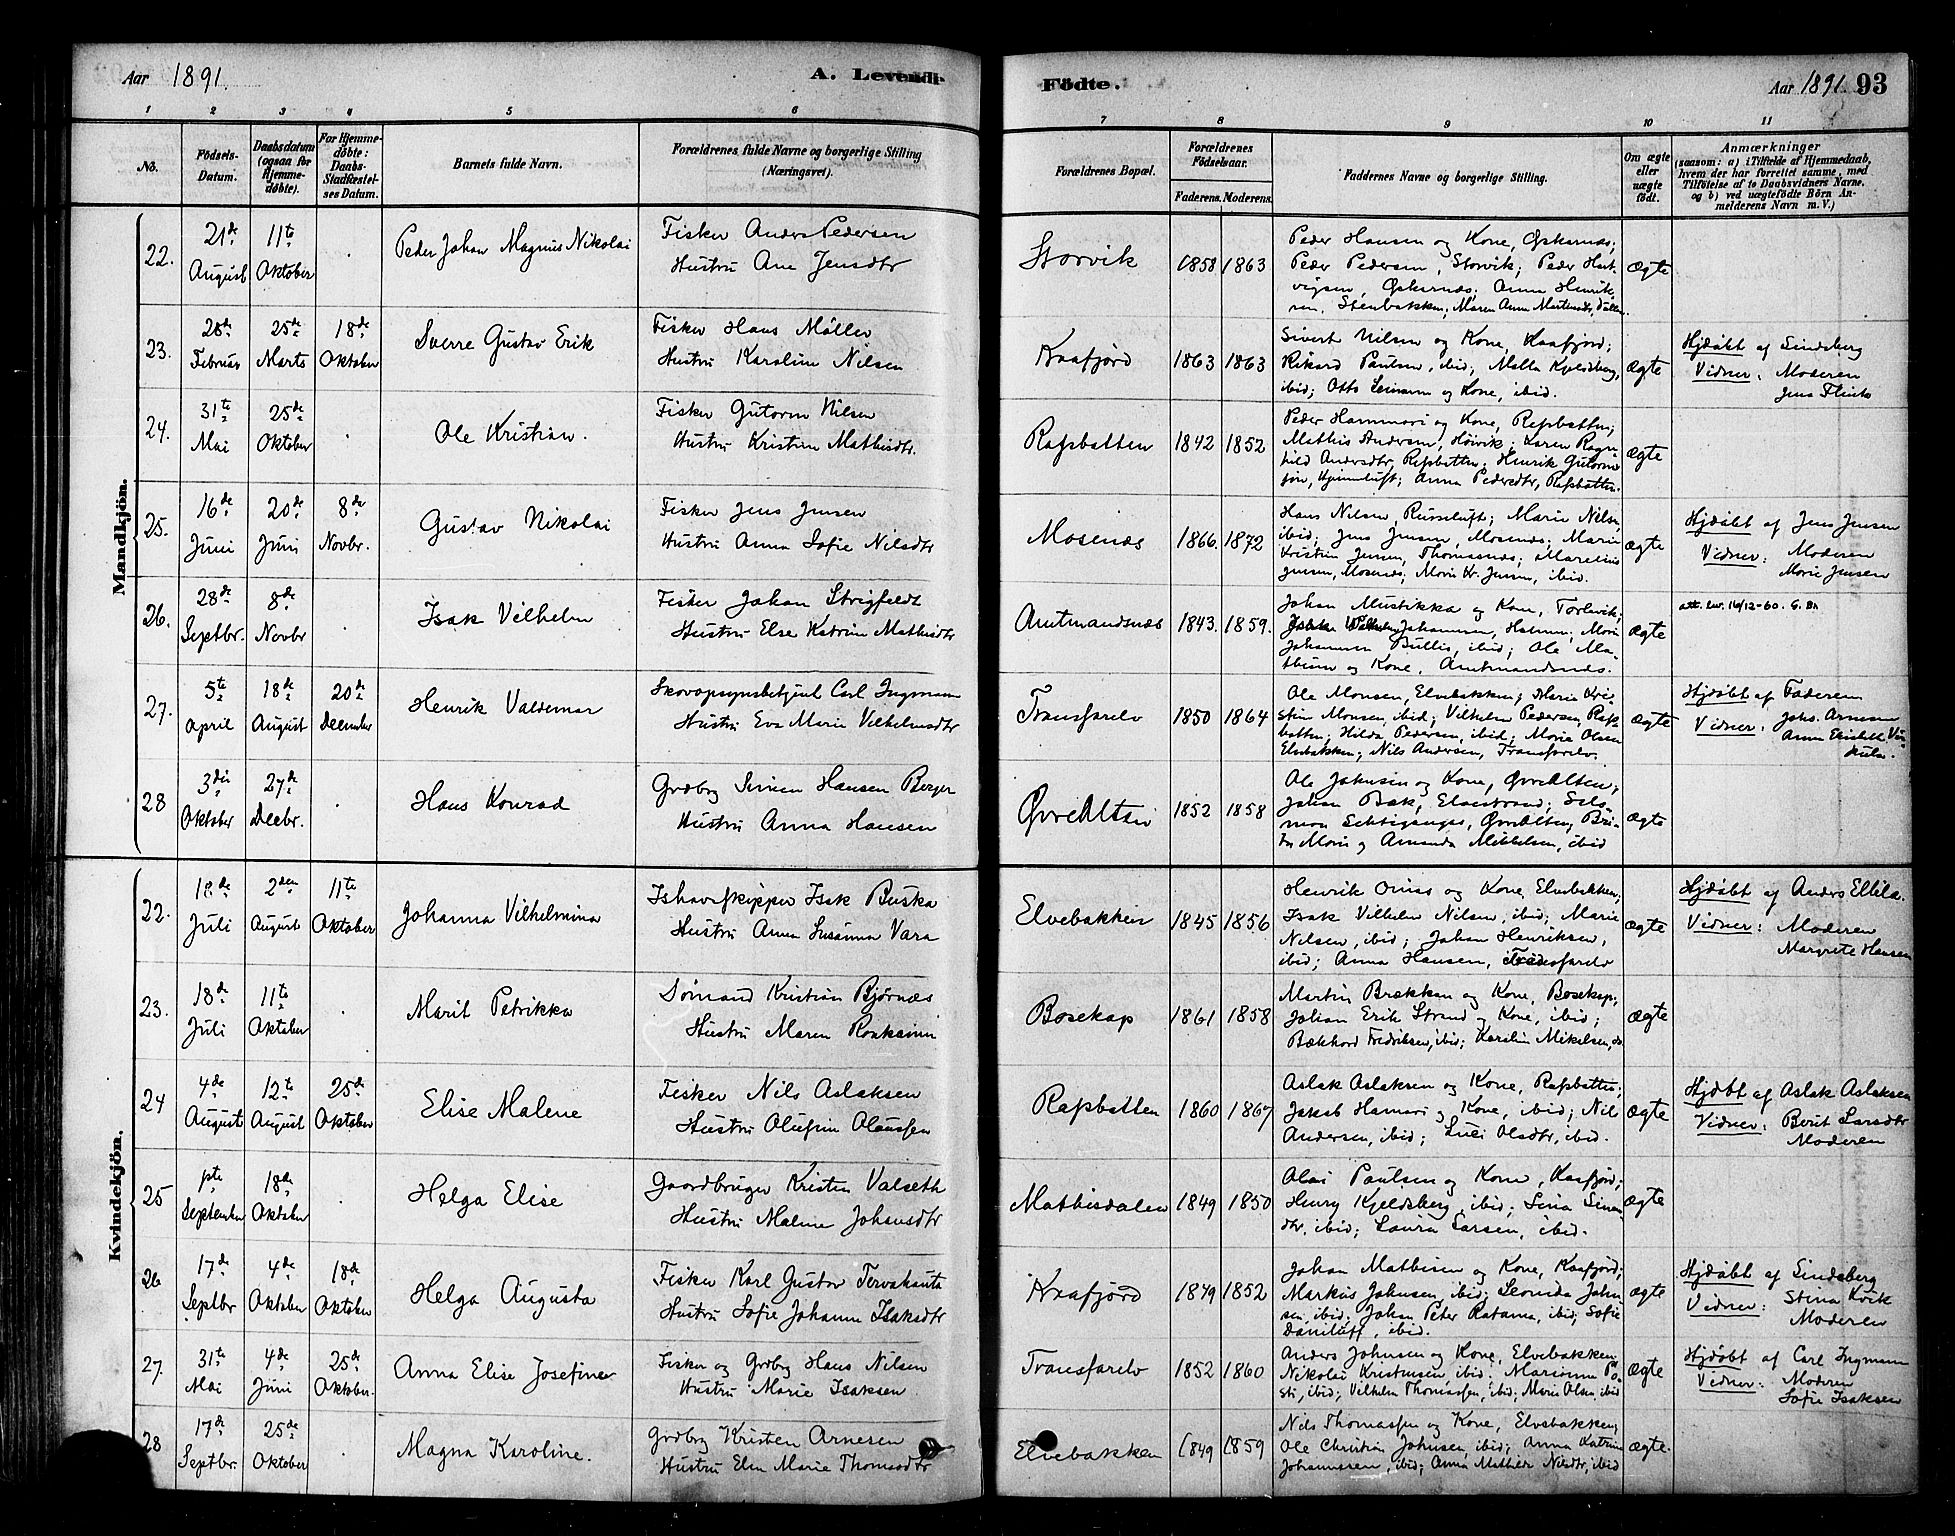 Aar 1891.
A. Levendi-
Födte.
Aar 1891. 93
1 2 3 4 5 6 7 8 9 10 11
No.
Födsels-
Datum.
Daabsdatum
(ogsaa for
Hjemme-
döbte).
For Hjemme-
döbte:
Daabs-
Stadfæstel-
ses Datum.
Barnets fulde Navn.
Forældrenes fulde Navne og borgerlige Stilling
(Næringsvei).
Forældrenes Bopæl.
Forældrenes
Födselsaar.
Faderens. Moderens.
Faddernes Navne og borgerlige Stilling.
Om ægte
eller
uægte
födt.
Anmærkninger
(saasom: a) i Tilfælde af Hjemmedaab,
hvem der har forrettet samme, med
Tilföielse af to Daabsvidners Navne,
og b) ved uægtefödte Börn An-
melderens Navn m. V.)
Mandkjön.
22.
21de
August
11te
Oktober
.
Peder Johan Magnus Nikolai
Fisker Anders Pedersen
Hustru Ane Jensdtr
Storvik
1858 1863
Peder Hansen og Kone, Öskarnæs;
Peder Pedersen, Storvik; Peder Hart-
vigsen, Öskarnæs; Anna Henrik-
sen, Stenbakken; Maren Anna
ægte
23.
Februar
25de
Marts
18de
Oktober
Sverre Gustav Erik
Fisker Hans Möller
Hustru Karoline Nilsen
Kaafjord
1863 1863
Sivert Nilsen og Kone, Kaafjord;
Rikard Paulsen, ibid; Malla Kjeldsberg,
ibid; Otto Leinann og Kone, ibid.
ægte
Hjdöbt af Lindsberg
Vidner: Moderen
Jens
24.
31te
Mai
25de
Oktober
.
Ole Kristian.
Fisker Gutorm Nilsen
Hustru Kristine Mathisdtr.
Rafsbotten
1842 1852
Peder Hammari og Kone, Rafsbotten;
Mathis Andersen, Höivik; Karen Ragn-
hild Andersdtr, Rafsbotten; Henrik Gutorm-
sen, Hjemmeluft; Anna Pedersdtr, Rafsbotten.
ægte
25.
16de
Juni
20de
Juni
8de
Novbr.
Gustav Nikolai
Fisker Jens Jensen
Hustru Anna Sofie Nilsdtr
Mosenæs
1866. 1872
Hans Nilsen, Russeluft; Marie Nilsen
ibid; Jens Jensen, Mosenæs; Maria
Kristine Jensen, Thomasnæs; Marelius
Jensen, Mosenæs; Marie Kr. Jensen, ibid.
ægte
Hjdöbt af Jens Jensen
Vidner: Moderen
Marie Jensen
26.
28de
Septbr.
8de
Novbr
Isak Vilhelm
Fisker Johan Strigfeldt
Hustru Else Katrine Mathisdtr
Amtmandsnæs
1843. 1859.
Johan Mustikka og Kone, Torlevik;
Johannesen, ibid; Ole Ma-
thisen og Kone, Amtmandsnæs.
ægte
att. lur. 16/12-60. G. Br
27.
5te
April
18de
August
20de
December
Henrik Valdemar
Skovopsynsbetjent Carl Ingmann
Hustru Eva Marie Vilhelmsdtr
Transfarelv
1850 1864
Ole Monsen, Elvebakken; Marie Kri-
stine Monsen, ibid; Vilhelm Pedersen, Rafs-
botten; Hilda Pedersen, ibid; Marie Olsen
Elvebakken; Nils Andersen, Transfarelv.
ægte
Hjdöbt af Faderen
Vidner: Johs. Arnesen
28
3die
Oktober
27de
Decbr.
.
Hans Konrad
Grdbrg Simen Hansen Berger
Hustru Anna Hansen
Övre Alten
1852 1858
Ole Johnsen og Kone, Övre Alten;
Johan Bak, Elvestrand; Salo-
mon, Övre Alten; Bri-
ta Marie og Amanda Mikkelsen, ibid
ægte
Kvindekjön.
22.
18de
Juli
2den
August
11te
Oktober
Johanna Vilhelmina
Ishavsskipper Isak Buska
Hustru Anna Susanna Vara
Elvebakken
1845 1856
Henrik og Kone, Elvebakken;
Isak Vilhelm Nilsen, ibid; Marie
Nilsen, ibid; Johan Henriksen,
ibid; Anna Hansen, Transfarelv
ægte
Hjdöbt af Anders Ellila.
Vidner: Moderen
Margrete Hansen
23.
18de
Juli
11te
Oktober
.
Marit Petrikka
Sömand Kristian Björnæs
Hustru Maren
Bosekop
1861 1858
Martin Brækken og Kone, Bosekop;
Johan Erik Strand og Kone, ibid;
Fredriksen, ibid; Karolin Mikelsen,
ægte
24
4de
August
12te
August
25de
Oktober
Elise Malene
Fisker Nils Aslaksen
Hustru Olufine Olaussen
Rafsbotten
1860 1867
Aslak Aslaksen og Kone, Rafsbotten;
Jakob Hamari og Kone, ibid; Nils
Andersen, ibid; Olsdtr, ibid.
ægte
Hjdöbt af Aslak Aslaksen
Vidner: Berit Larsdtr
Moderen
25
September
18de
Oktober
.
Helga Elise
Gaardbruger Kristen Valseth
Hustru Malene Johansdtr
Mathisdalen
1849 1850
Olai Paulsen og Kone, Kaafjord;
Henry Kjeldsberg, ibid; Lina Simen-
dtr, ibid; Laura Larsen, ibid.
ægte
26
17de
Septbr
4de
Oktober
18de
Oktober
Helga Augusta
Fisker Karl Gustav Tervakanta
Hustru Sofie Johanne Isaksdtr
Kaafjord
1849 1852
Johan Mathisen og Kone, Kaafjord;
Markus Johnsen, ibid; Leonida John-
sen, ibid; Johan Peter Ratama, ibid; Sofie
Daniloff, ibid.
ægte
Hjdöbt af Lindsberg
Vidner: Stina Kvik
Moderen
27.
31te
Mai
4de
Juni
25de
Oktober.
Anna Elise Josefine
Fisker og Grdbrg Hans Nilsen
Hustru Marie Isaksen
Transfarelv
1852 1860
Anders Johnsen og Kone, Elvebakken;
Nikolai Kristensen, ibid; Marianne Po-
sti, ibid; Vilhelm Thomassen, ibid; Marie Olsen, ibid
ægte
Hjdöbt af Carl Ingmann
Vidner: Moderen
Sofie Isaksen
28
17de
Septbr.
25de
Oktober
Magna Karoline.
Grdbrg Kristen Arnesen
Hustru Elen Marie Thomasdtr
Elvebakken
1849 1859
Nils Thomassen og Kone, Elvebakken;
Ole Christian Johnsen, ibid; Anna Katrine
Johannessen, ibid; Anna Mathilde Nilsdtr, ibid
ægte.